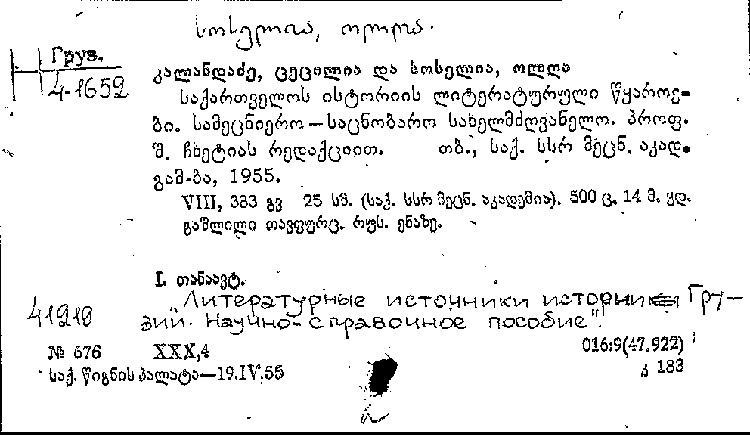 სოსელია, ოლღა.
Груз.
4-1652
კალანდაძე, ცეცილია და სოსელია, ოლღა
საქართველოს ისტორიის ლიტერატურული წყაროე-
ბი. სამეცნიერო—საცნობარო სახელმძღვანელო. პროფ.
შ. ჩხეტიას რედაქციით. თბ., საქ. სსრ მეცნ. აკად.
გამ-ბა, 1955.
VIII, 383 გვ 25 სმ. (საქ. სსრ მეცნ. აკადემია). 500 ც. 14 მ. ყდ.
გაშლილი თავფურც. რუს. ენაზე.
I. თანაავტ.
"Литературные источники истории Гру-
зии. Научно-справочное пособие".
41910
№ 676 XXX,4 016:9(47.922)
საქ. წიგნის პალატა—19.IV.55 კ 183